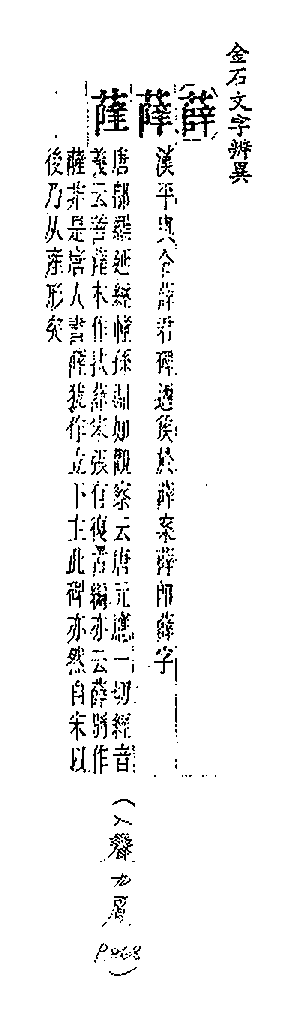 金石文字辨異
薛薛薩
漢平輿令薛君碑遷侯於薛案薛即薛字
唐鄔羅延經幢孫淵如觀察云唐元應一切經音
義云菩薩本作扶薛宋張有復古編亦云薛別作
薩非是唐人書薩猶作立下主此碑亦然自宋以
後乃从產形矣
(入聲九屑
P.868)